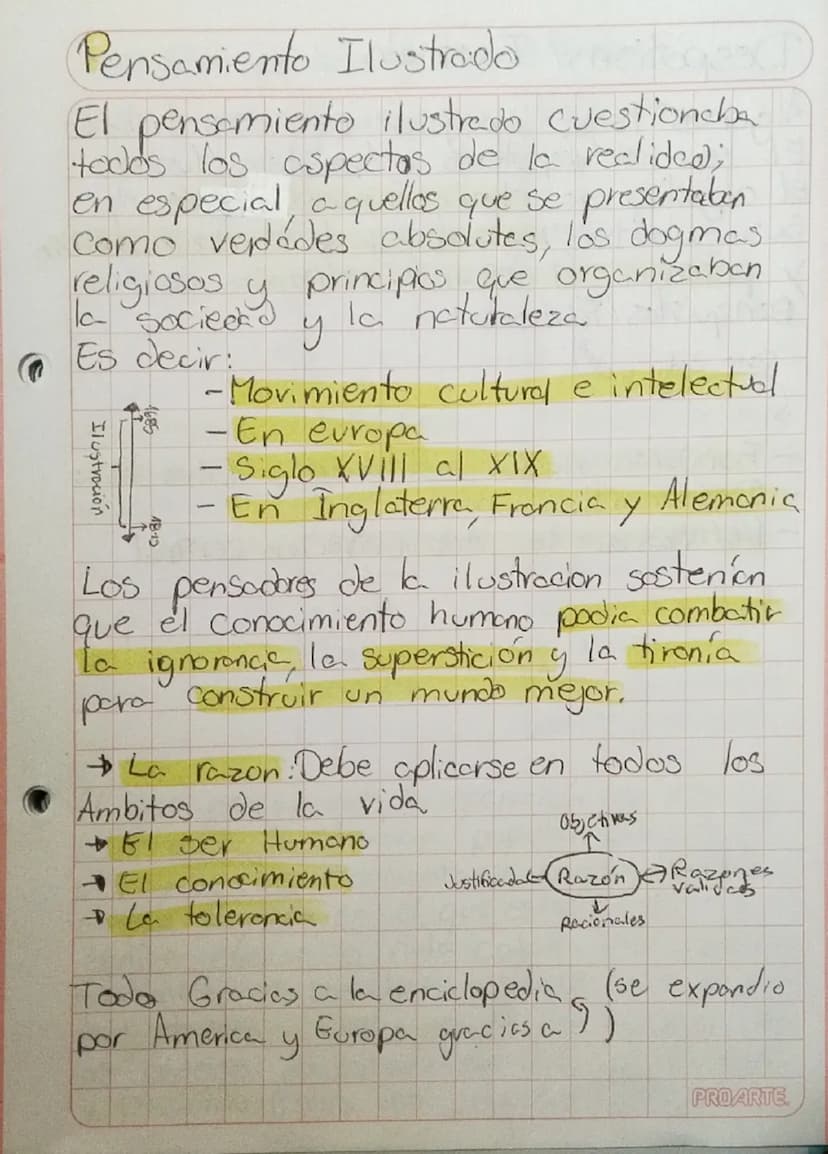 Pensamiento Ilustrado
El pensamiento ilustrado cuestionaba
todos los aspectos de la realidad;
en especial, aquellos que se presentaban
como verdades absolutas, los dogmas
religiosos y principios que organizaban
la sociedad y la naturaleza
Es decir:
- Movimiento cultural e intelectual
- En europa
- Siglo XVIII al XIX
- En Inglaterra, Francia y Alemania
Ilustración
1685
1810
Los pensadores de la ilustracion sostenían
que el conocimiento humano podia combatir
la ignorancia, la superstición y la tiranía
para construir un mundo mejor.
→ La razon: Debe aplicarse en todos los
Ambitos de la vida
→ El ser Humano
→ El conocimiento
→ La tolerancia
Objetivas
Justificada ← Razón ↔ Razones
validas
Racionales
Todo Gracias a la enciclopedia (se expandio
por America y Europa gracias a )
PROARTE